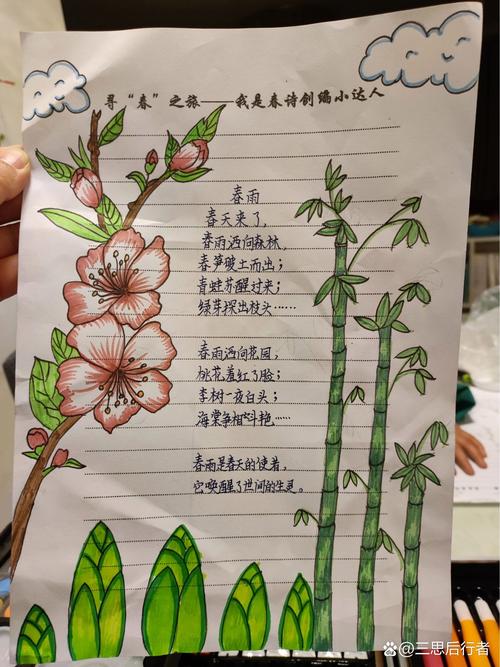 寻“春”之旅——我是春诗创编小达人
春雨
春天来了，
春雨洒向森林，
春笋破土而出；
青蛙苏醒过来；
绿芽探出枝头……
春雨洒向花园，
桃花羞红了脸；
李树一夜白头；
海棠争相斗艳……
春雨是春天的使者，
它唤醒了世间的生灵。
三思后行者